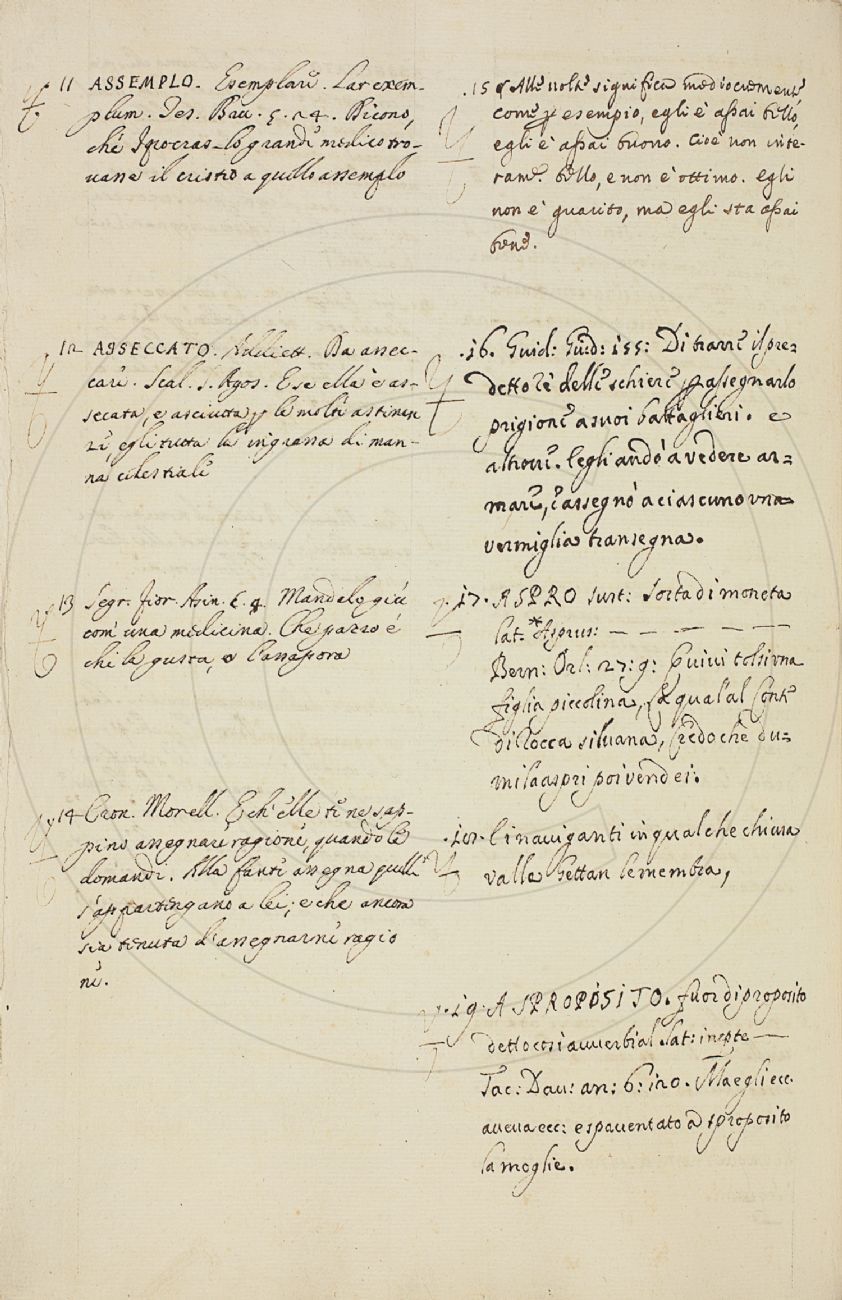 11 ASSEMPLO. Esemplare. Lat exem-
plum. Tes. 5. 14. Dicono,
che Ipocras lo grande medico tro-
vasse il cristeo a quello assemplo
12 ASSECCATO. Addiett. Da assec-
care. Scal. S. Agos. E se ella è as-
seccata, e asciutta p le molti astinen
ze, egli tutta la ingrassa di man-
na celestiale
13 Segr. Fior. Asin. c. Mandalo giù
com' una medicina. Che pazzo è
chi la gusta, o l'assapora
14 Cron. Morell. E ch' elle ti ne sap-
pino assegnare ragione, quando le
domandi. Alla fante assegna quelle
s'appartengano a lei; e che ancora
sia tenuta d'assegnarne ragio
ne.
.15 Alle volte significa mediocremente
come p esempio, egli è assai bello,
egli è assai buono. Cioè non inte-
ram.e bello, e non è ottimo. Egli
non è guarito, ma egli sta assai
bene.
.16. Guid: Giud: 155: Di trarre il pre=
detto Re delle schiere, p assegnarlo
prigione a suoi battaglieri. e
altrove. l egli andò a vedere ar=
mare, e assegnò a ciascuno una
vermiglia transegna.
.17. ASPRO sust: Sorta di moneta
lat. *Asprus: — — — — —
Bern: Orl: 27: 9: Quivi tolsi una
figlia piccolina, Ch qual' al Conte
di Rocca silvana, Credo che du=
mila aspri poi vendei.
.18. E i naviganti in qualche chiusa
valle Gettan le membra,
.19. ASPROPOSITO. fuor di proposito
detto così avverbial Lat: inepte —
Tac: Dav: an: 6: 120. Ma egli ecc.
aveva ecc: e spaventato a sproposito
la moglie.